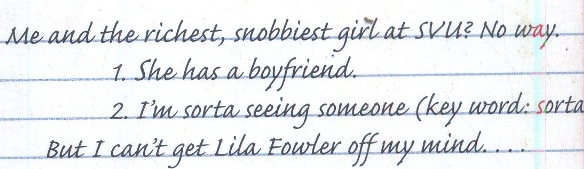 Me and the richest, snobbiest girl at SVU? No way.
1. She has a boyfriend.
2. I'm sorta seeing someone (key word: sorta
But I can't get Lila Fowler off my mind. . . .